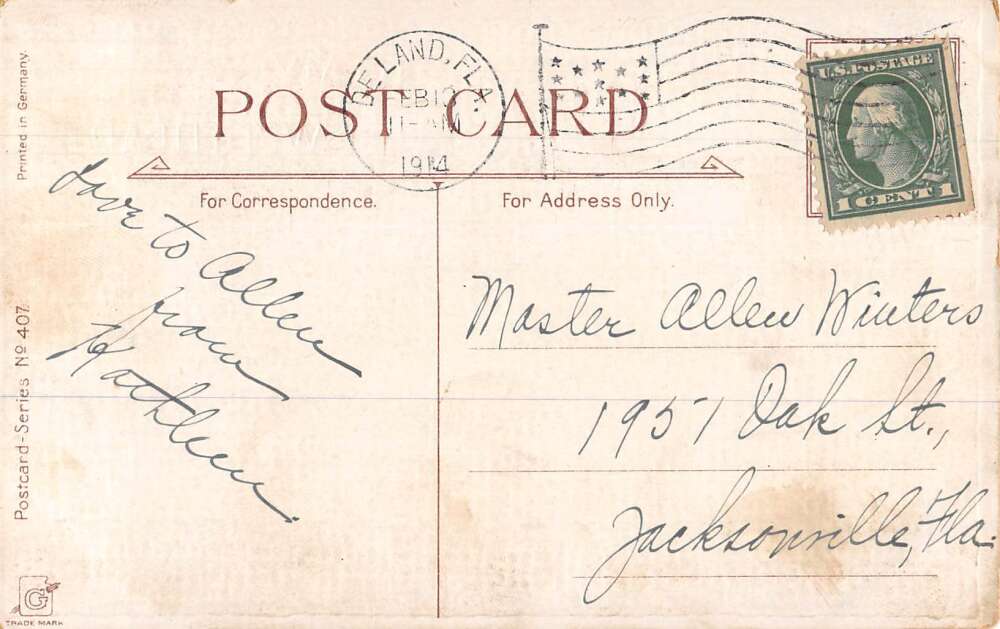 Printed in Germany.
Postcard-Series No 407.
POST CARD
DE LAND, FLA.
FEB 13
11-AM
1914
U.S. POSTAGE
1 CENT 1
For Correspondence.
For Address Only.
Love to Allen
from
Kathleen.
Master Allen Winters
1951 Oak St.,
Jacksonville, Fla.
G
TRADE MARK